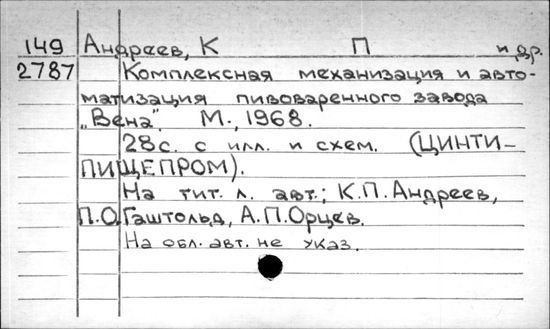 149 Андреев, К П и др.
2787 Комплексная механизация и авто-
матизация пивоваренного завода
„Вена". М., 1968.
28с. с илл. и схем. (ЦИНТИ-
ПИЩЕПРОМ).
На тит. л. авт.: К.П. Андреев,
П.О. Гаштольд, А.П. Орцев.
На обл. авт. не указ.